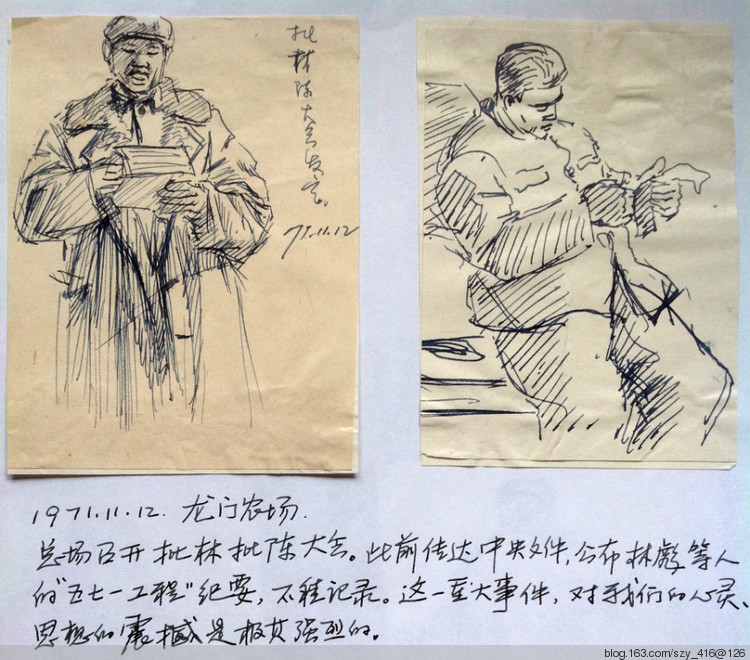 批
林
陈
大
会
发
言。
71.11.12
1971.11.12. 龙门农场.
总场召开批林批陈大会。此前传达中央文件,公布林彪等人
的"五七一工程"纪要,不准记录。这一重大事件,对于我们的心灵、
思想的震撼是极其强烈的。
blog.163.com/szy_416@126